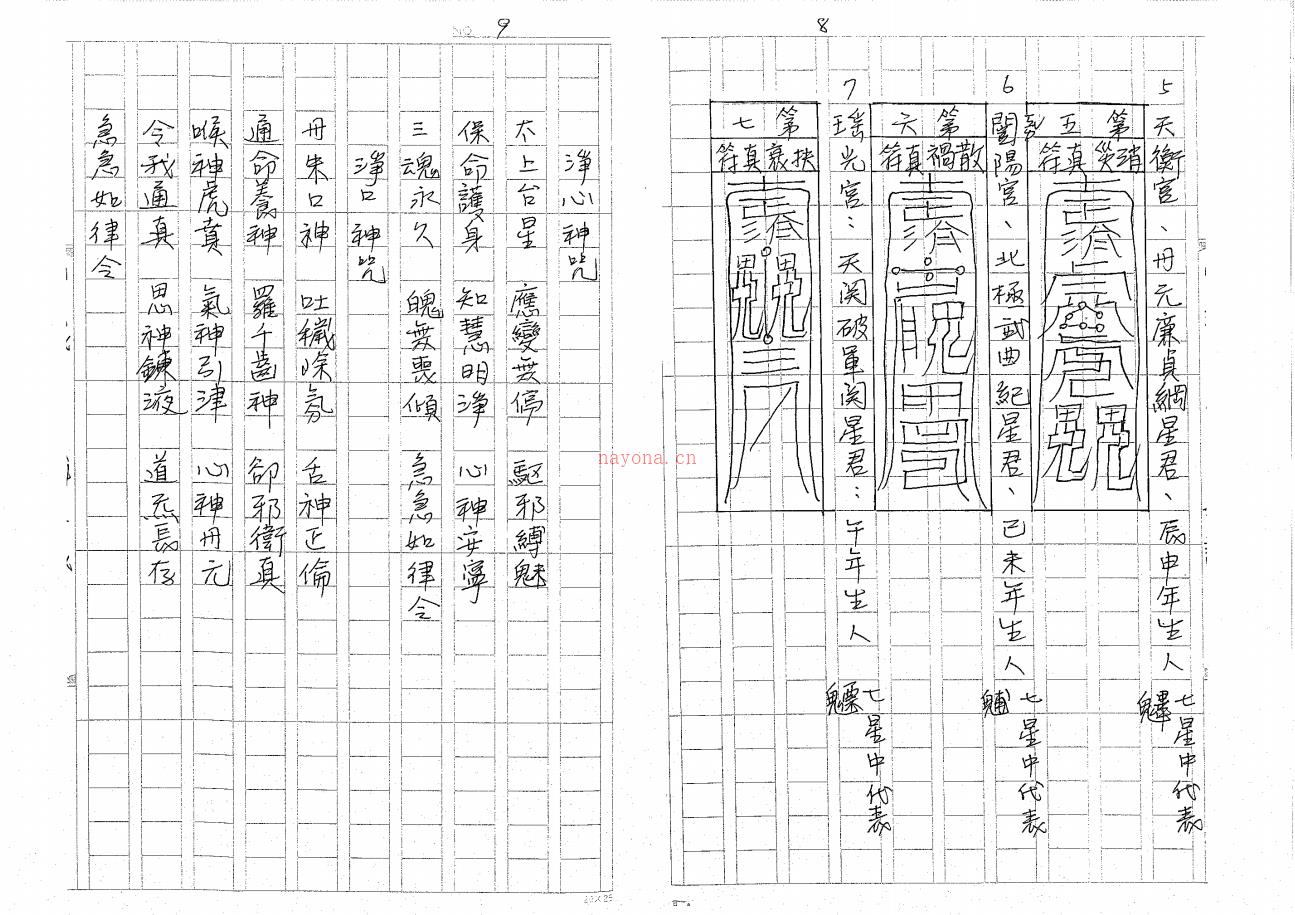 8
5 天衡宮、丹元廉貞綱星君、辰申年生人 七星中代表
第五
消災真符
6 闓陽宮、北極武曲紀星君、巳未年生人 七星中代表
第六
散禍真符
7 瑤光宮：天関破軍関星君：午年生人 七星中代表魒
第七
扶衰真符
NO. 9
淨心神咒
太上台星 應變無停 駆邪縛魅
保命護身 知慧明淨 心神安寧
三魂永久 魄無喪傾 急急如律令
淨口神咒
丹朱口神 吐穢除氛 舌神正倫
通命養神 羅千齒神 卻邪衛真
喉神虎賁 氣神引津 心神丹元
令我通真 思神鍊液 道炁長存
急急如律令
nayona.cn